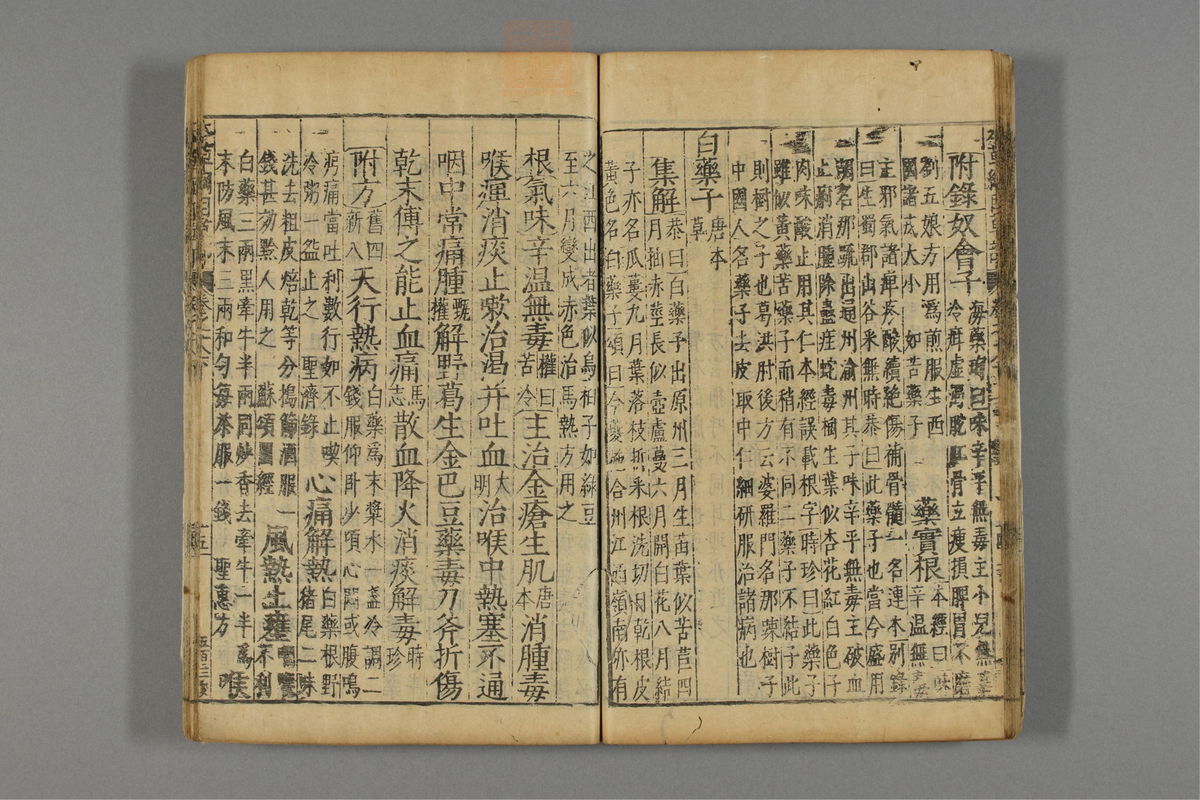 附錄奴會子海藥珣曰味辛平無毒主小兒無
冷疳虛渴脫肛骨立瘦損脾胃不磨
劉五娘方用爲煎服生西
國諸戎大小如苦藥子
藥實根本經曰味
辛溫無
主邪氣諸痺疼酸續絕傷補骨髓一名連木别錄
曰生蜀郡山谷采無時恭曰此藥子也當今盛用
胡名那疏出通州渝州其子味辛平無毒主破血
止痢消腫除蠱疰蛇毒樹生葉似杏花紅白色子
肉味酸止用其仁本經誤載根字時珍曰此藥子
雖似黃藥苦藥子而稍有不同二藥子不結子此
則樹之子也葛洪肘後方云婆羅門名那疎樹子
中國人名藥子去皮取中仁細研服治諸病也
白藥子唐本草
集解恭曰白藥子出原州三月生苗葉似苦苣四
月抽赤莖長似壺盧蔓六月開白花八月結
子亦名瓜蔞九月葉落枝折采根洗切日乾根皮
黃色名白藥子頌曰今夔施合州江西嶺南亦有
之江西出者葉似烏桕子如綠豆
至六月變成赤色治馬熱方用之
根氣味辛溫無毒權曰苦冷主治金瘡生肌唐本消腫毒
喉痺消痰止嗽治渴并吐血大明治喉中熱塞不通
咽中常痛腫甄權解野葛生金巴豆藥毒刀斧折傷
乾末傅之能止血痛馬志散血降火消痰解毒時珍
附方舊四新八天行熱病白藥爲末漿水一盞冷調二
錢服仰卧少頃心悶或腹鳴
㽱痛當吐利數行如不止喫
冷粥一盌止之聖濟錄心痛解熱白藥根野
猪尾二味
洗去粗皮焙乾等分擣篩酒服一
錢甚効黔人用之蘇頌圖經風熱上壅
不利
白藥三兩黑牽牛半兩同炒香去牽牛一半爲
末防風末三兩和勻每茶服一錢聖惠方喉